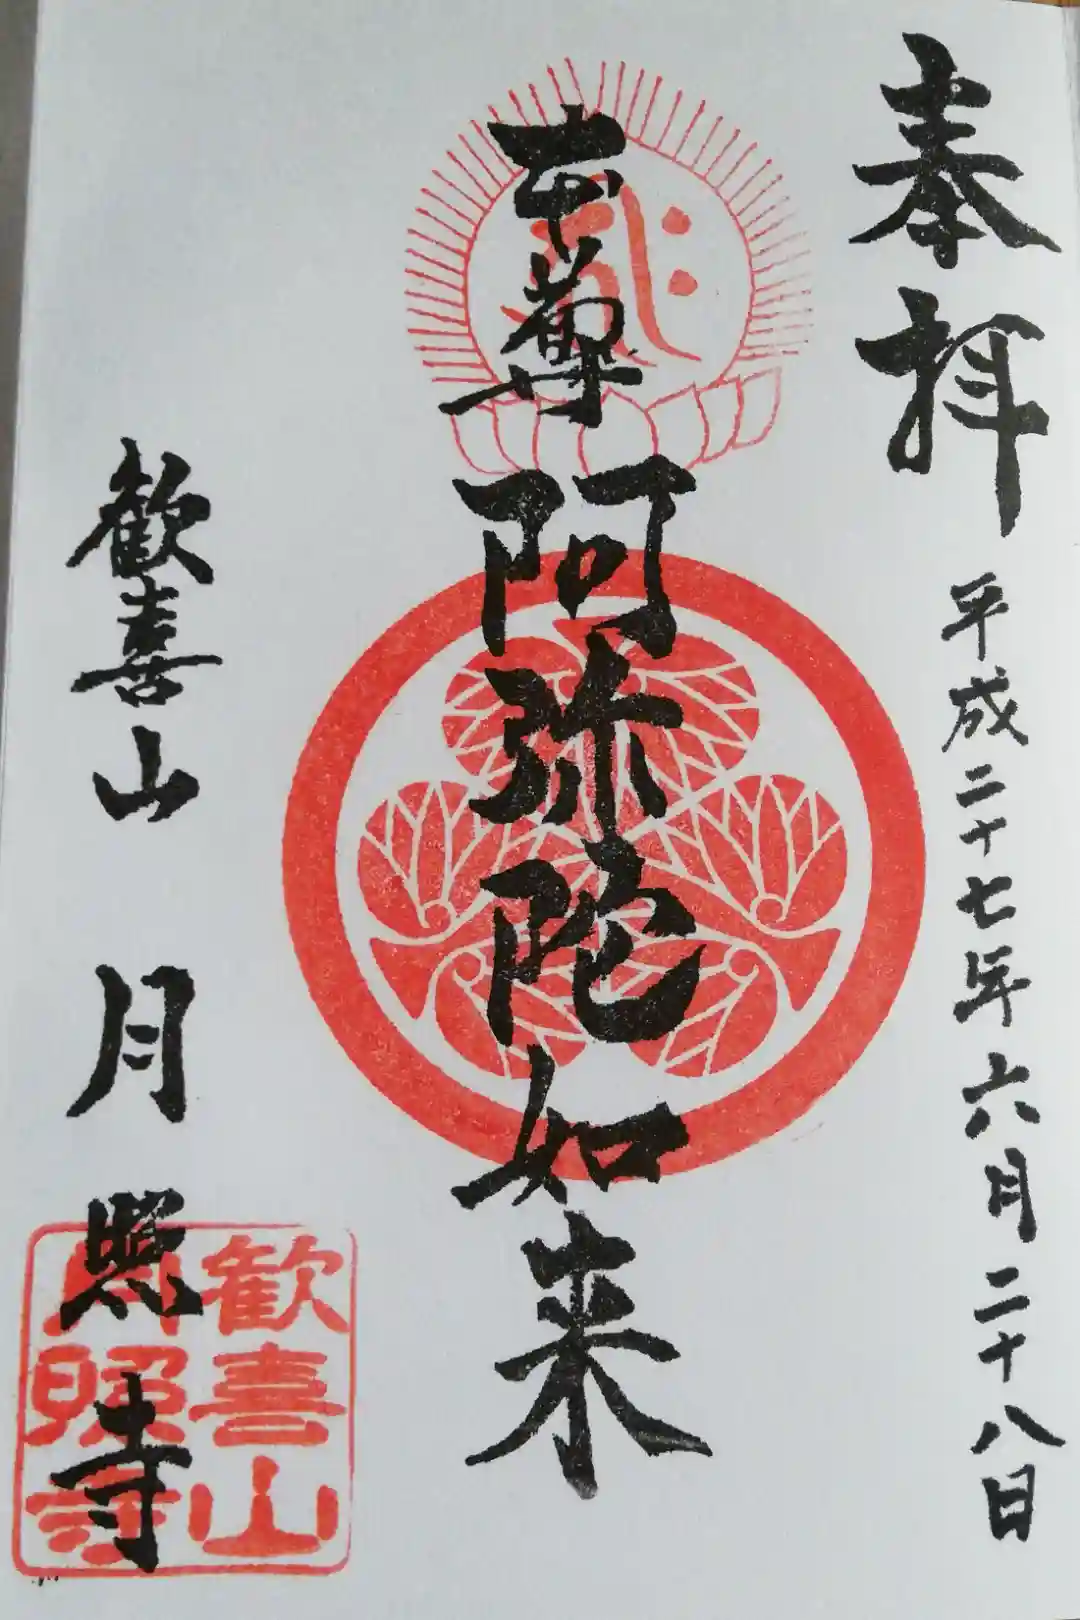 奉拝
平成二十七年六月二十八日
本尊 阿弥陀如来
歓喜山 月照寺
歓喜山
月照寺